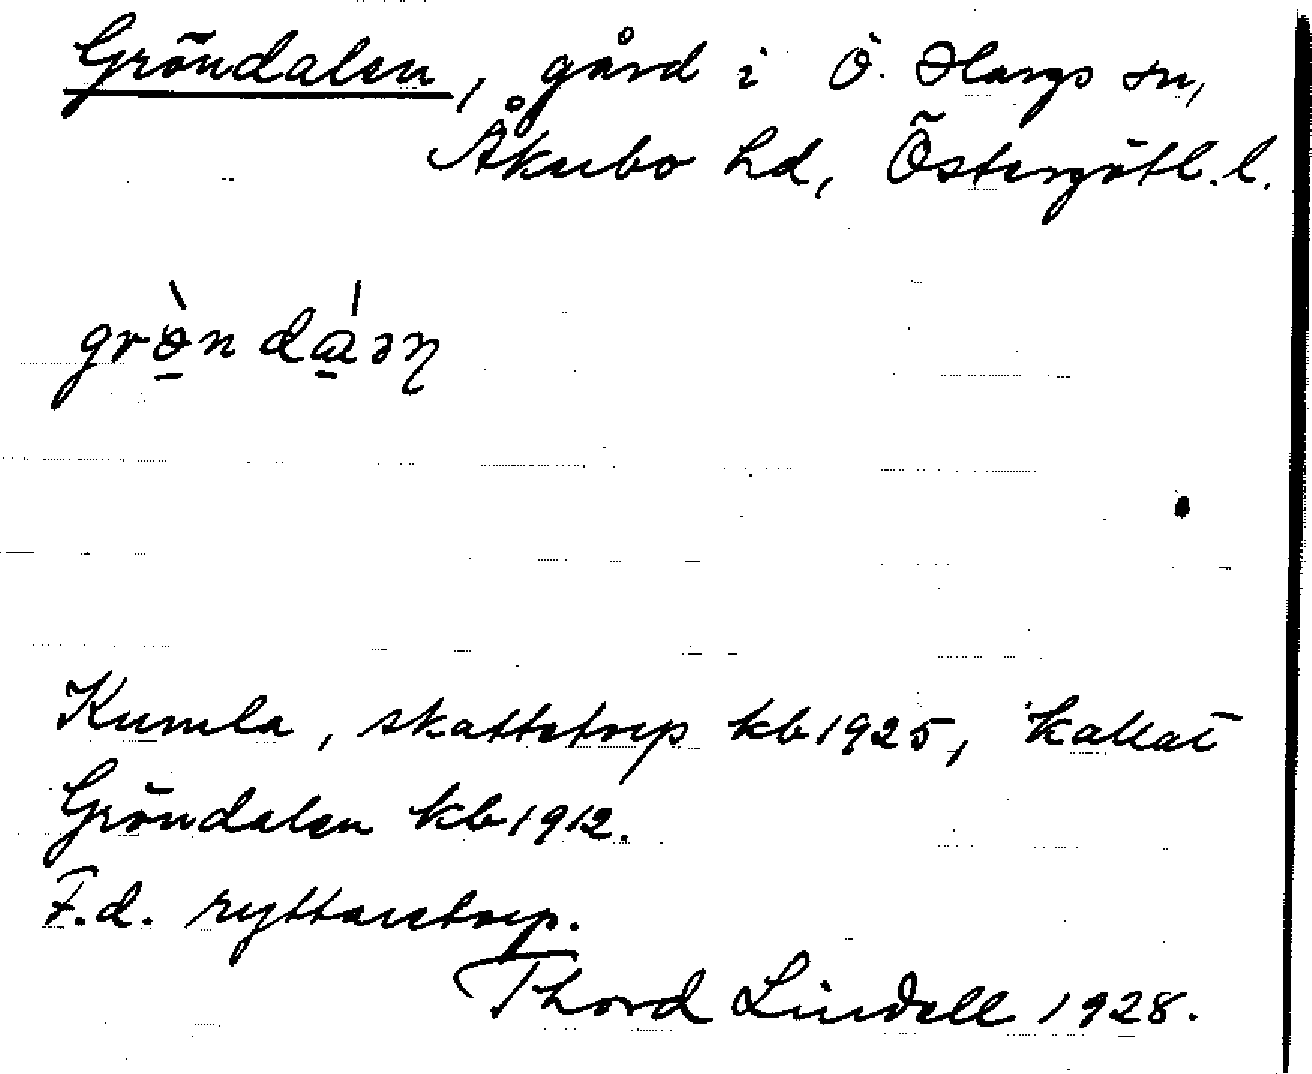 Gröndalen, gård i Ö. Hargs sn,
Åkerbo hd, Östergötl. l.
Kumla, skattetorp kb 1925, kallat
Gröndalen kb 1912.
F.d. ryttaretorp.
Thord Lindell 1928.